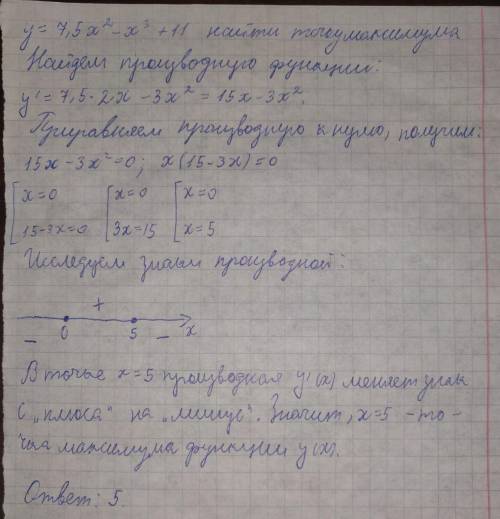 y = 7,5x² - x³ + 11 найти точку максимума
Найдём производную функции:
y' = 7,5·2x - 3x² = 15x - 3x².
Приравняем производную к нулю, получим:
15x - 3x² = 0; x(15-3x) = 0
[x=0 [x=0 [x=0
15-3x=0 3x=15 x=5
Исследуем знаки производной:
+
0 5 x
- -
В точке x=5 производная y'(x) меняет знак
с „плюса" на „минус". Значит, x=5 - то-
чка максимума функции y(x).
Ответ: 5.